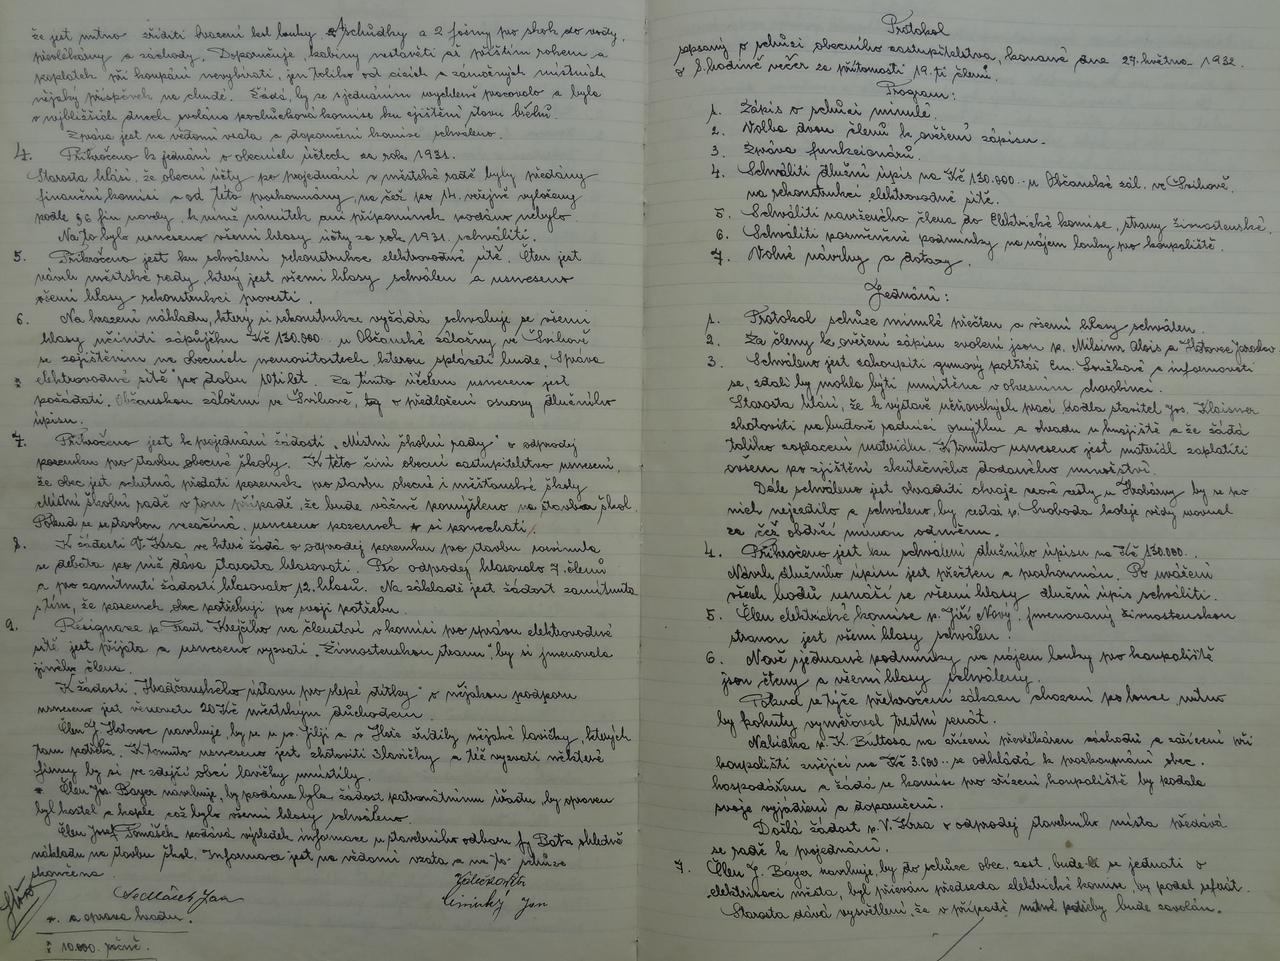 že jest nutno zříditi hrazení kol louky, schůdky a 2 fošny pro skok do vody,
převlékárny a záchody. Doporučuje, kabiny nestavěti až příštím rokem a
poplatek při koupání nevybírati, jen toliko od cizích a zámožných místních
nějaký příspěvek na chudé. Žádá, by se s jednáním urychleně pracovalo a byla
v nejbližších dnech svolána pochůzková komise ku zjištění stavu
Zpráva jest na vědomí vzata a doporučení komise schváleno.
4. Přikročeno k jednání o obecních účtech za rok 1931.
Starosta hlásí, že obecní účty po projednání v městské radě byly předány
finanční komisi a od této prozkoumány, na čež po 14. veřejně vyloženy
podle § 6 fin. novely, k nimž námitek ani připomínek podáno nebylo.
Na to bylo usneseno všemi hlasy účty za rok 1931. schváliti.
5. Přikročeno jest ku schválení rekonstrukce elektrovodné sítě. Čten jest
návrh městské rady, který jest všemi hlasy schválen a usneseno
všemi hlasy rekonstrukci provésti.
6. Na hrazení nákladu, který si rekonstrukce vyžádá schvaluje se všemi
hlasy učiniti zápůjčku Kč 130.000.- u Občanské záložny ve Svihově
se zajištěním na obecních nemovitostech kterou spláceti bude "Správa
elektrovodné sítě" po dobu 10ti let. Za tímto účelem usneseno jest
požádati Občanskou záložnu ve Svihově, o předložení osnovy dlužního
úpisu.
7. Přikročeno jest k projednání žádosti "Místní školní rady" o odprodej
pozemku pro stavbu obecné školy. K této činí obecní zastupitelstvo usnesení,
že obec jest ochotna předati pozemek pro stavbu obecné i měšťanské školy
Místní školní radě v tom případě, že bude vážně pomýšleno na stavbu škol.
Pokud se se stavbou nezačíná, usneseno pozemek si ponechati.
8. K žádosti V. Krsa ve které žádá o odprodej pozemku pro stavbu rozvinula
se debata po níž dává starosta hlasovati. Pro odprodej hlasovalo 7. členů
a pro zamítnutí žádosti hlasovalo 12. hlasů. Na základě jest žádost zamítnuta
s tím, že pozemek obec potřebuje pro svoji potřebu.
9. Resignace p. Frant. Krejčího na členství v komisi pro správu elektrovodné
sítě jest přijata a usneseno vyzvati "Živnostenskou stranu", by si jmenovala
jiného člena.
K žádosti "Hradčanského ústavu pro slepé dítky" o nějakou podporu
usneseno jest věnovati 20 Kč městským důchodem.
Člen J. Hotovec navrhuje, by se u sv. Jiljí a v Háji zřídily nějaké lavičky, kterých
tam potřeba. K tomuto usneseno jest zhotoviti 3 lavičky a též vyzvati některé
firmy by si ve zdejší obci lavičky umístily.
Člen Jos. Bayer navrhuje, by podána byla žádost patronátnímu úřadu, by opraven
byl kostel a kaple což bylo všemi hlasy schváleno.
Člen Josef Tomášek podává výsledek informace u stavebního odboru fy Baťa ohledně
nákladu na stavbu škol. Informace jest na vědomí vzata a na to schůze
skončena.
Sedláček Jan
Jan
*. a oprava hradu.
: 10.000. ročně.
Protokol
sepsaný o schůzi obecního zastupitelstva, konané dne 27. května 1932.
v 8. hodině večer za přítomosti 19.ti členů.
Program:
1. Zápis o schůzi minulé.
2. Volba dvou členů k ověření zápisu.
3. Zpráva funkcionářů.
4. Schváliti dlužní úpis na Kč 130.000.- u Občanské zál. ve Svihově.
na rekonstrukci elektrovodné sítě.
5. Schváliti navrženého člena do Elektrické komise, strany živnostenské.
6. Schváliti pozměněné podmínky na nájem louky pro koupaliště.
7. Volné návrhy a dotazy.
Jednání:
1. Protokol schůze minulé přečten a všemi hlasy schválen.
2. Za členy k ověření zápisu zvoleni jsou p. Milsimr Alois a Hotovec Jaroslav
3. Schváleno jest zakoupiti gumový polštář Em. Součkové a informovati
se, zdali by mohla býti umístěna v okresním chorobinci.
Starosta hlásí, že k výstavě učňovských prací hodlá stavitel Jos. Klaisner
zhotoviti na budově radnici omítku a ohradu u hnojiště a že žádá
toliko zaplacení materiálu. K tomuto usneseno jest materiál zaplatiti
ovšem po zjištění skutečného dodaného množství.
Dále schváleno jest ohraditi okraje nové cesty u Hrobárny by se po
nich nejezdilo a schváleno, by cestář p. Svoboda koleje vždy urovnal
za čež obdrží mírnou odměnu.
4. Přikročeno jest ku schválení dlužního úpisu na Kč 130.000.-
Návrh dlužního úpisu jest přečten a prozkoumán. Po uvážení
všech bodů usnáší se všemi hlasy dlužní úpis schváliti.
5. Člen elektrické komise p. Jiří Nový, jmenovaný živnostenskou
stranou jest všemi hlasy schválen.
6. Nově sjednané podmínky na nájem louky pro koupaliště
jsou čteny a všemi hlasy schváleny.
Pokud se týče překročení zákazu chození po louce, nutno
by pokuty vyměřoval trestní senát.
Nabídka p. K. Buttosa na zřízení převlékáren záchodů a zařízení při
koupališti znějící na Kč 3.600.- se odkládá k prozkoumání obec.
hospodářem a žádá se komise pro zřízení koupaliště by podala
svoje vyjádření a doporučení.
Došlá žádost p. V. Krsa o odprodej stavebního místa předává
se radě k projednání.
7. Člen J. Bayer navrhuje, by do schůze obec. zast. bude-li se jednati o
elektrisaci města, byl přizván předseda elektrické komise, by podal referát.
Starosta dává vysvětlení, že v případě nutné potřeby bude zavolán.